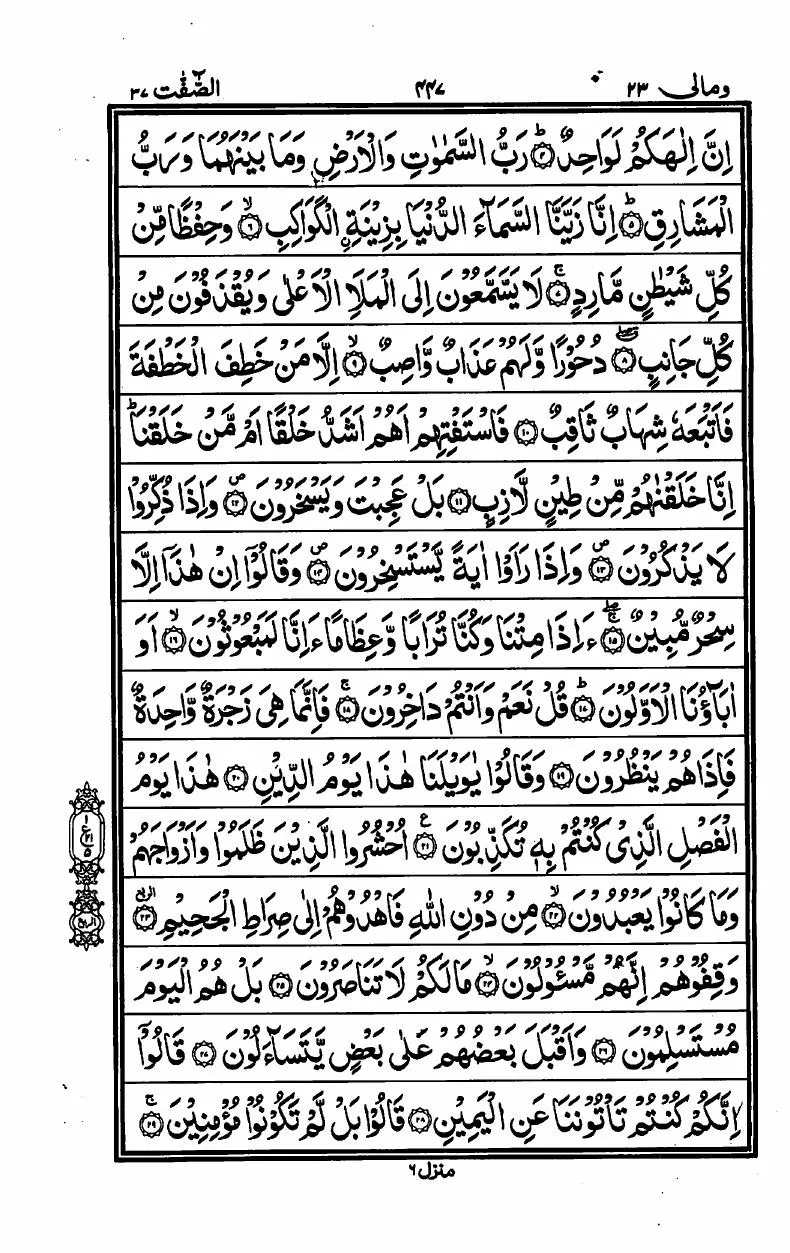 ومالی ۲۳ ۴۴۷ الصّٰٓفّٰت ۳۷
اِنَّ اِلٰهَكُمْ لَوَاحِدٌ ۴ؕ رَبُّ السَّمٰوٰتِ وَالْاَرْضِ وَمَا بَيْنَهُمَا وَرَبُّ
الْمَشَارِقِ ۵ؕ اِنَّا زَيَّنَّا السَّمَآءَ الدُّنْيَا بِزِيْنَةِ ِۨالْكَوَاكِبِ ۶ۙ وَحِفْظًا مِّنْ
كُلِّ شَيْطٰنٍ مَّارِدٍ ۷ۚ لَا يَسَّمَّعُوْنَ اِلَى الْمَلَاِ الْاَعْلٰى وَيُقْذَفُوْنَ مِنْ
كُلِّ جَانِبٍ ۸ۖ دُحُوْرًا وَّلَهُمْ عَذَابٌ وَّاصِبٌ ۹ۙ اِلَّا مَنْ خَطِفَ الْخَطْفَةَ
فَاَتْبَعَهٗ شِهَابٌ ثَاقِبٌ ۱۰ فَاسْتَفْتِهِمْ اَهُمْ اَشَدُّ خَلْقًا اَمْ مَّنْ خَلَقْنَا ؕ
اِنَّا خَلَقْنٰهُمْ مِّنْ طِيْنٍ لَّازِبٍ ۱۱ بَلْ عَجِبْتَ وَيَسْخَرُوْنَ ۱۲ وَاِذَا ذُكِّرُوْا
لَا يَذْكُرُوْنَ ۱۳ وَاِذَا رَاَوْا اٰيَةً يَّسْتَسْخِرُوْنَ ۱۴ وَقَالُوْٓا اِنْ هٰذَآ اِلَّا
سِحْرٌ مُّبِيْنٌ ۱۵ ءَاِذَا مِتْنَا وَكُنَّا تُرَابًا وَّعِظَامًا ءَاِنَّا لَمَبْعُوْثُوْنَ ۱۶ۙ اَوَ
اٰبَآؤُنَا الْاَوَّلُوْنَ ۱۷ؕ قُلْ نَعَمْ وَاَنْتُمْ دَاخِرُوْنَ ۱۸ۚ فَاِنَّمَا هِيَ زَجْرَةٌ وَّاحِدَةٌ
فَاِذَا هُمْ يَنْظُرُوْنَ ۱۹ وَقَالُوْا يٰوَيْلَنَا هٰذَا يَوْمُ الدِّيْنِ ۲۰ هٰذَا يَوْمُ
الْفَصْلِ الَّذِيْ كُنْتُمْ بِهٖ تُكَذِّبُوْنَ ۲۱ ع اُحْشُرُوا الَّذِيْنَ ظَلَمُوْا وَاَزْوَاجَهُمْ
وَمَا كَانُوْا يَعْبُدُوْنَ ۲۲ۙ مِنْ دُوْنِ اللّٰهِ فَاهْدُوْهُمْ اِلٰى صِرَاطِ الْجَحِيْمِ ۲۳
وَقِفُوْهُمْ اِنَّهُمْ مَّسْئُوْلُوْنَ ۲۴ۙ مَا لَكُمْ لَا تَنَاصَرُوْنَ ۲۵ بَلْ هُمُ الْيَوْمَ
مُسْتَسْلِمُوْنَ ۲۶ وَاَقْبَلَ بَعْضُهُمْ عَلٰى بَعْضٍ يَّتَسَآءَلُوْنَ ۲۷ قَالُوْٓا
اِنَّكُمْ كُنْتُمْ تَاْتُوْنَنَا عَنِ الْيَمِيْنِ ۲۸ قَالُوْا بَلْ لَّمْ تَكُوْنُوْا مُؤْمِنِيْنَ ۲۹ۚ
منزل ۶